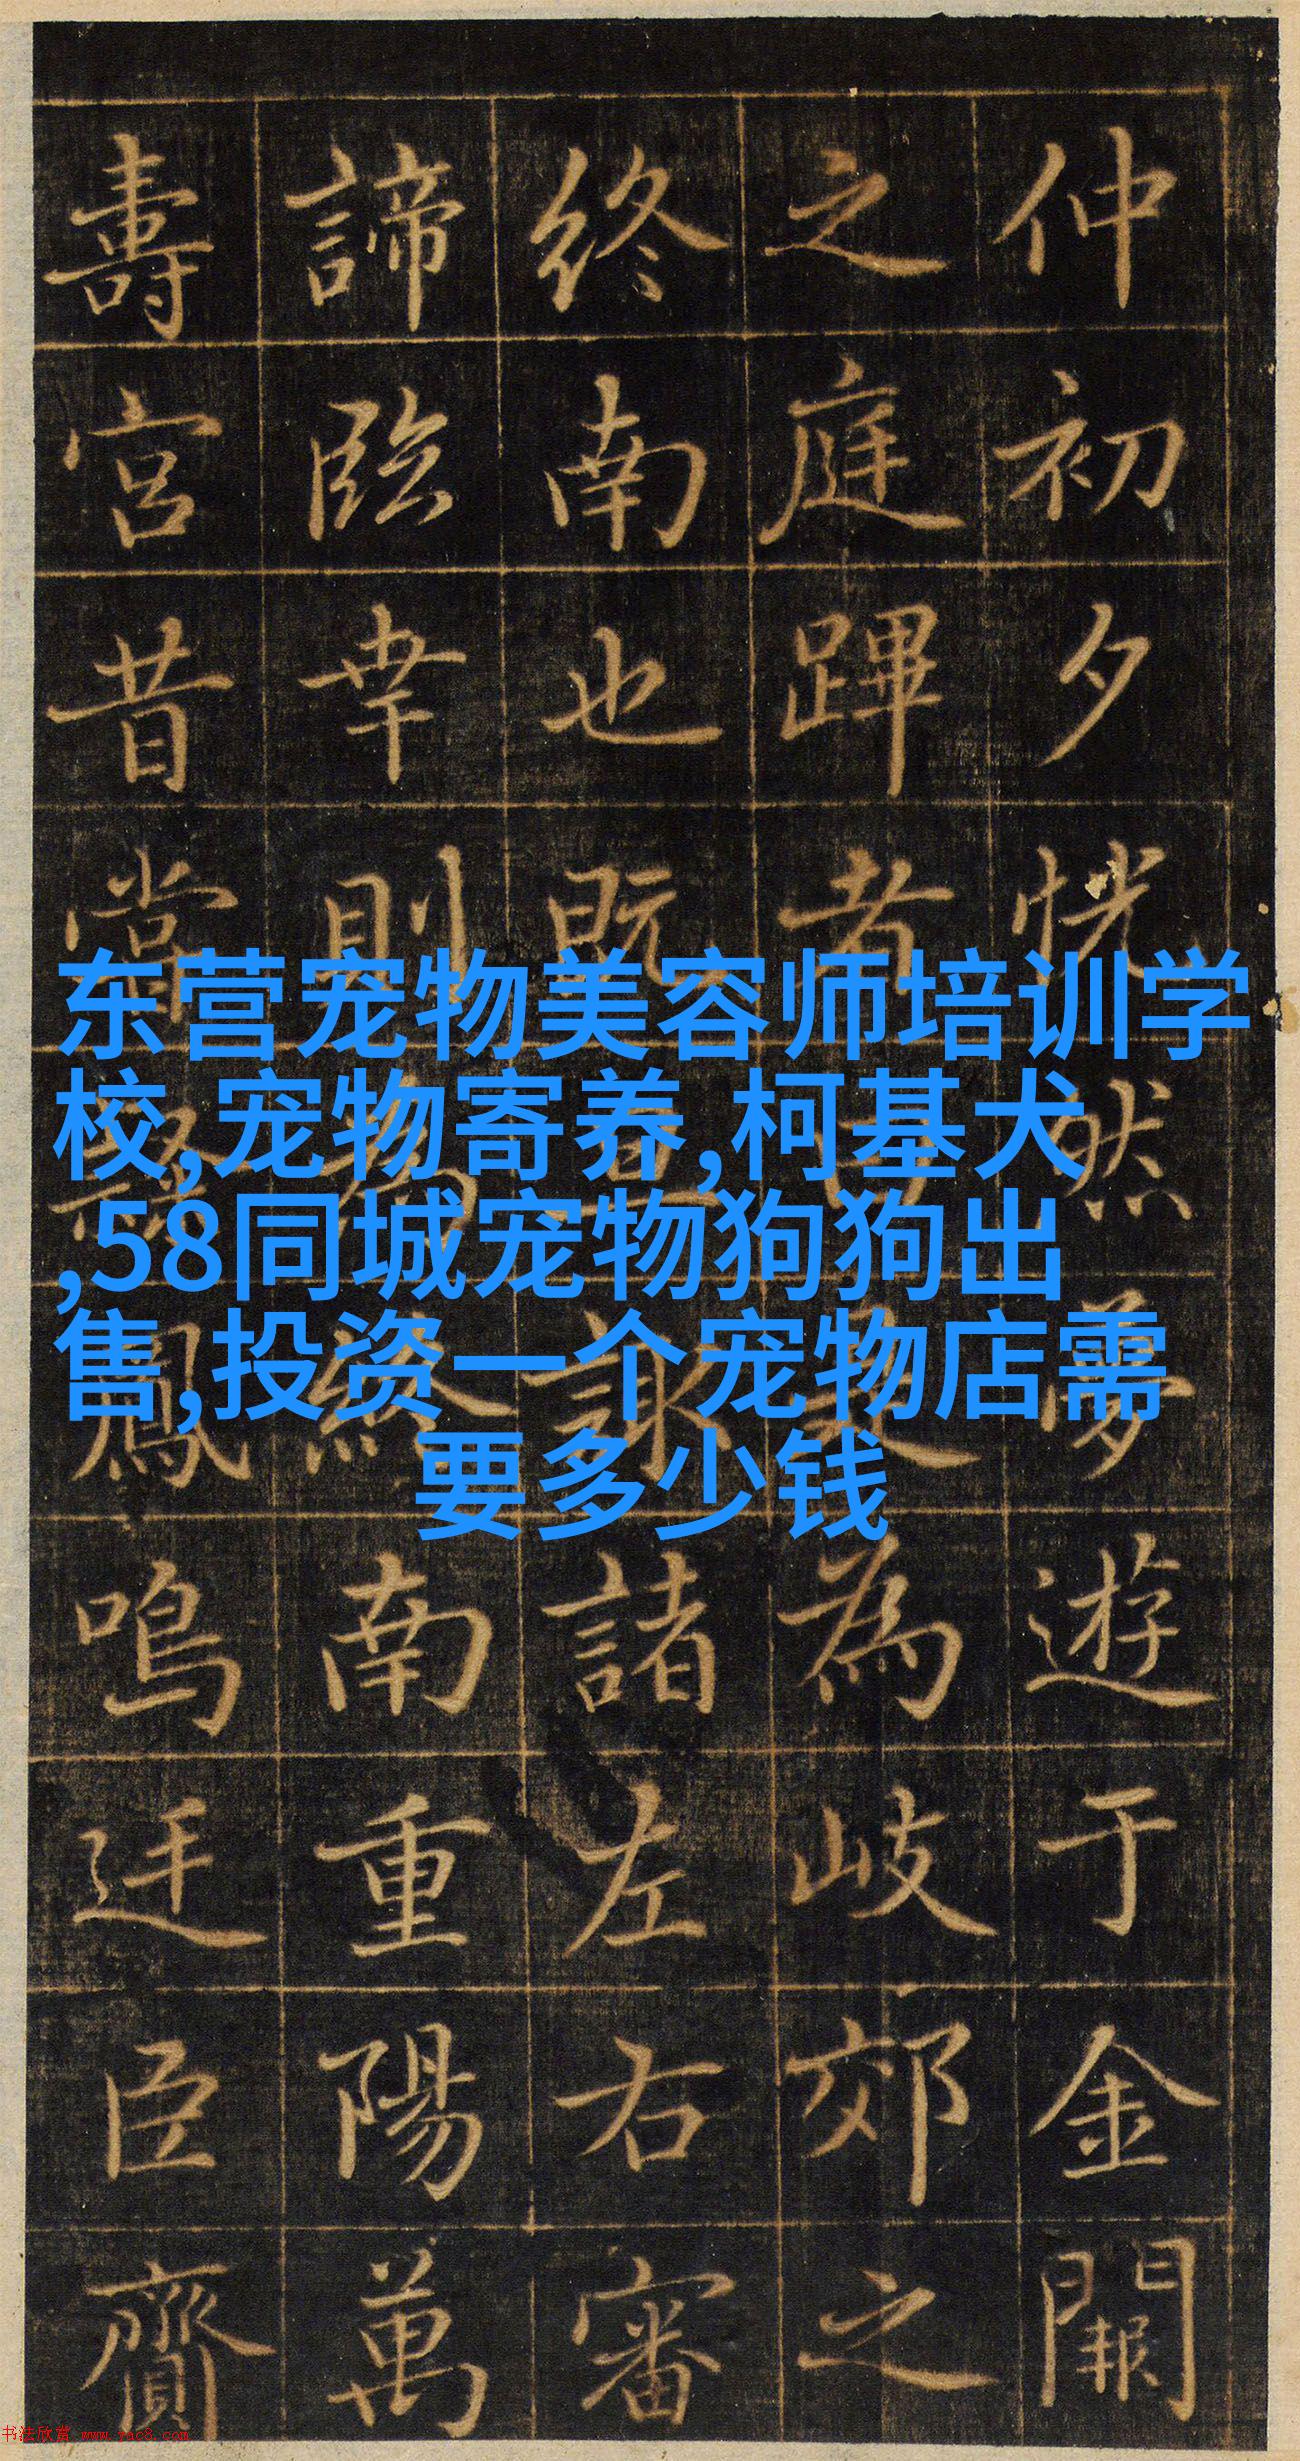 仲初夕恍然夢遊于金闕
之庭蹕者為岐郊之
終南也既諸左右審
諦臨幸則終南重陽萬
壽宮昔嘗鳳鳴迋臣齎
东营宠物美容师培训学
校,宠物寄养,柯基犬
,58同城宠物狗狗出
售,投资一个宠物店需
要多少钱
书法欣赏 www.yac8.com